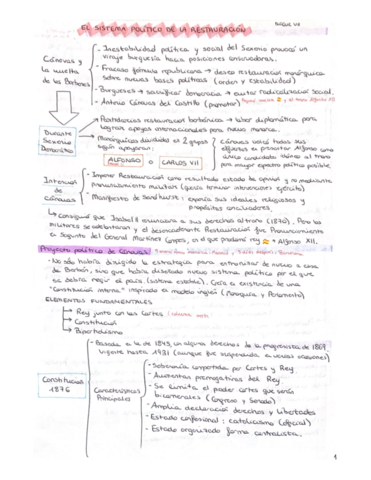 BLOQUE VII
EL SISTEMA POLÍTICO DE LA RESTAURACIÓN
Cánovas y
la vuelta
de los Borbones
- Inestabilidad política y social del Sexenio provocó un
viraje burguesía hacia posiciones conservadoras.
- Fracaso fórmula republicana → deseo restauración monárquica
sobre nuevas bases políticas (orden y estabilidad)
- Burgueses → sacrificar democracia → evitar radicalización social.
- Antonio Cánovas del Castillo (promotor)
Durante
Sexenio
Democrático
- Partidarios restauración borbónica → labor diplomática para
lograr apoyos internacionales para nuevo monarca.
- Monárquicos divididos en 2 grupos
según apoyaban:
ALFONSO o CARLOS VII
Cánovas volcó todos sus
esfuerzos en presentar Alfonso como
único candidato idóneo al trono
por mayor espectro político posible.
Intención
de
Cánovas
- Imponer Restauración como resultado estado de opinión y no mediante
pronunciamiento militar (quería frenar intervenciones ejército)
- Manifiesto de Sandhurst: exponía sus ideales religiosos y
propósitos conciliadores.
↳ Consiguió que Isabel II renunciara a sus derechos al trono (1870). Pero los
militares se adelantaron y el desencadenante Restauración fue Pronunciamiento
de Sagunto del General Martínez Campos, en el que proclamó rey a Alfonso XII.
Proyecto político de Cánovas:
- No sólo había dirigido la estrategia para entronizar de nuevo a casa
de Borbón, sino que había diseñado nuevo sistema político por el que
se debía regir el país (sistema estable). Creía en existencia de una
"Constitución interna" inspirada en modelo inglés (Monarquía y Parlamento)
ELEMENTOS FUNDAMENTALES
→ Rey junto con las Cortes
→ Constitución
→ Bipartidismo
Constitución
1876
- Basada en la de 1845, con algunos derechos de la progresista de 1869,
vigente hasta 1931 (aunque fue suspendida en varias ocasiones)
Características
Principales
- Soberanía compartida por Cortes y Rey.
- Aumentan prerrogativas del Rey
- Se limita el poder Cortes que serán
bicamerales (Congreso y Senado)
- Amplia declaración derechos y libertades
- Estado confesional: catolicismo (oficial)
- Estado organizado forma centralista.
1